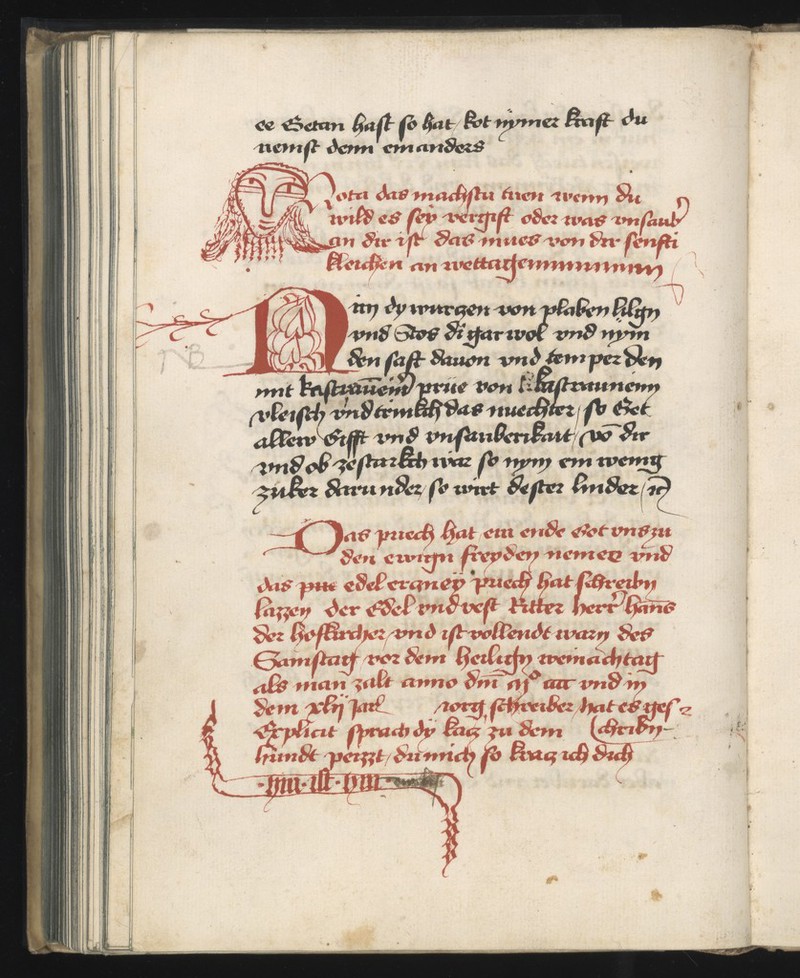 ee Getan hast so hat kot nymer kraft du
nemst denn ein anders
Nota das machstu tuen wenn du
wild es sey vergift oder was vnsaub̾
an dir ist das mues von dir senfti
kleichen an wettagenn
Nym dy wurczen von plaben lilgn
vnd Stos di gar wol vnd nym
den saft dauon vnd temper den
mit kastrauneim̄ prue von kastrauneim
vleisch vnd trinkch das nuechter / so Get
allew Gifft vnd vnsauberikait / vō dir
vnd ob ze starkch wär so nym ein wenig
zuker darunder / so wirt dester linder / ꝛc
Das puech hat ein ende Got vns zu
den ewign frewden nemer vnd
das edel ercznéy puech hat schreibn
lazzen der Edel vnd vest Ritter herr hanns
der hofkircher vnd ist vollendt warn des
Samstag vor dem heilign weinachtag
als man zalt anno dm̄ vnd in
dem xlij Jar Jorg schreiber hat es ges
Explicit sprach dy kacz zu dem (chribn
hundt peizzt / du mich so kracz ich dich